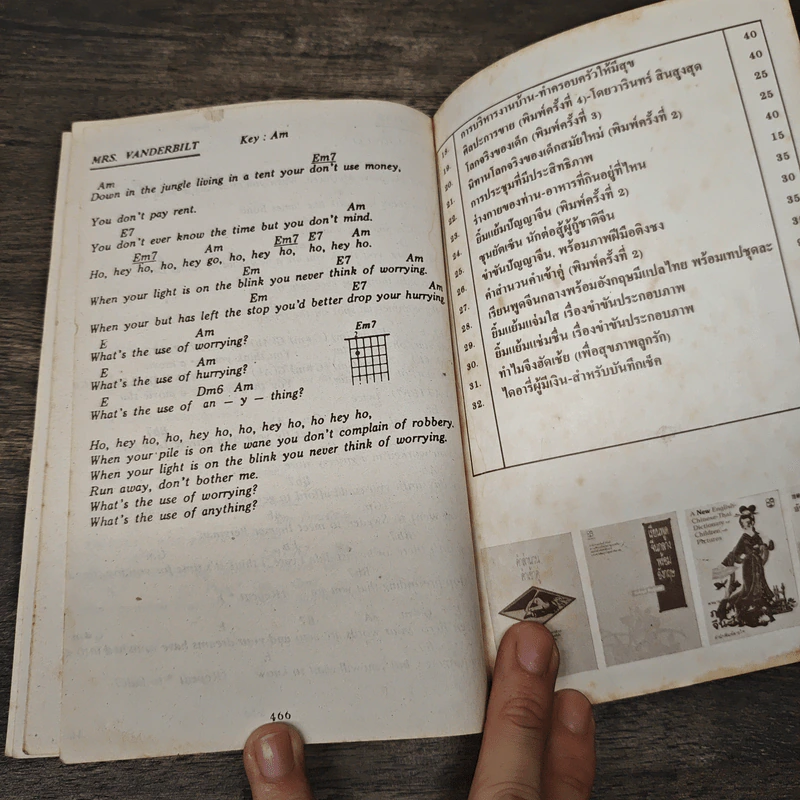 MRS. VANDERBILT
Key : Am
Am Em7
Down in the jungle living in a tent your don't use money,
You don't pay rent.
E7 Am
You don't ever know the time but you don't mind.
Em7 Am Em7 E7 Am
Ho, hey ho, ho, hey go, ho, hey ho, ho, hey ho.
Em E7 Am
When your light is on the blink you never think of worrying.
Em E7 Am
When your but has left the stop you'd better drop your hurrying
E Am
What's the use of worrying?
E Am
What's the use of hurrying?
E Dm6 Am
What's the use of an – y – thing?
Em7
Ho, hey ho, ho, hey ho, ho, hey ho, ho hey ho,
When your pile is on the wane you don't complain of robbery.
When your light is on the blink you never think of worrying.
Run away, don't bother me.
What's the use of worrying?
What's the use of anything?
466
18. การบริหารงานบ้าน-ทำครอบครัวให้มีสุข 40
19. ศิลปะการขาย (พิมพ์ครั้งที่ 4)-โดยวารินทร์ สินสูงสุด 40
20. โลกจริงของเด็ก (พิมพ์ครั้งที่ 3) 25
21. นิทานโลกจริงของเด็กสมัยใหม่ (พิมพ์ครั้งที่ 2) 25
22. การประชุมที่มีประสิทธิภาพ 40
23. ร่างกายของท่าน-อาหารที่กินอยู่ที่ไหน 15
24. ยิ้มแย้มปัญญาจีน (พิมพ์ครั้งที่ 2) 35
25. ซุนยัดเซ็น นักต่อสู้ผู้กู้ชาติจีน 30
26. ขำขันปัญญาจีน, พร้อมภาพฝีมือติงชง 35
27. คำสำนวนคำเข้าคู่ (พิมพ์ครั้งที่ 2)
28. เรียนพูดจีนกลางพร้อมอังกฤษมีแปลไทย พร้อมเทปชุดละ
29. ยิ้มแย้มแจ่มใส เรื่องขำขันประกอบภาพ
30. ยิ้มแย้มแช่มชื่น เรื่องขำขันประกอบภาพ
31. ทำไมจึงฮัดเช้ย (เพื่อสุขภาพลูกรัก)
32. ไดอารี่ผู้มีเงิน-สำหรับบันทึกเช็ค
คำสำนวน
คำเข้าคู่
เรียนพูด
จีนกลาง
พร้อม
อังกฤษ
A New English
Chinese-Thai
Dictionary
Children
Pictures